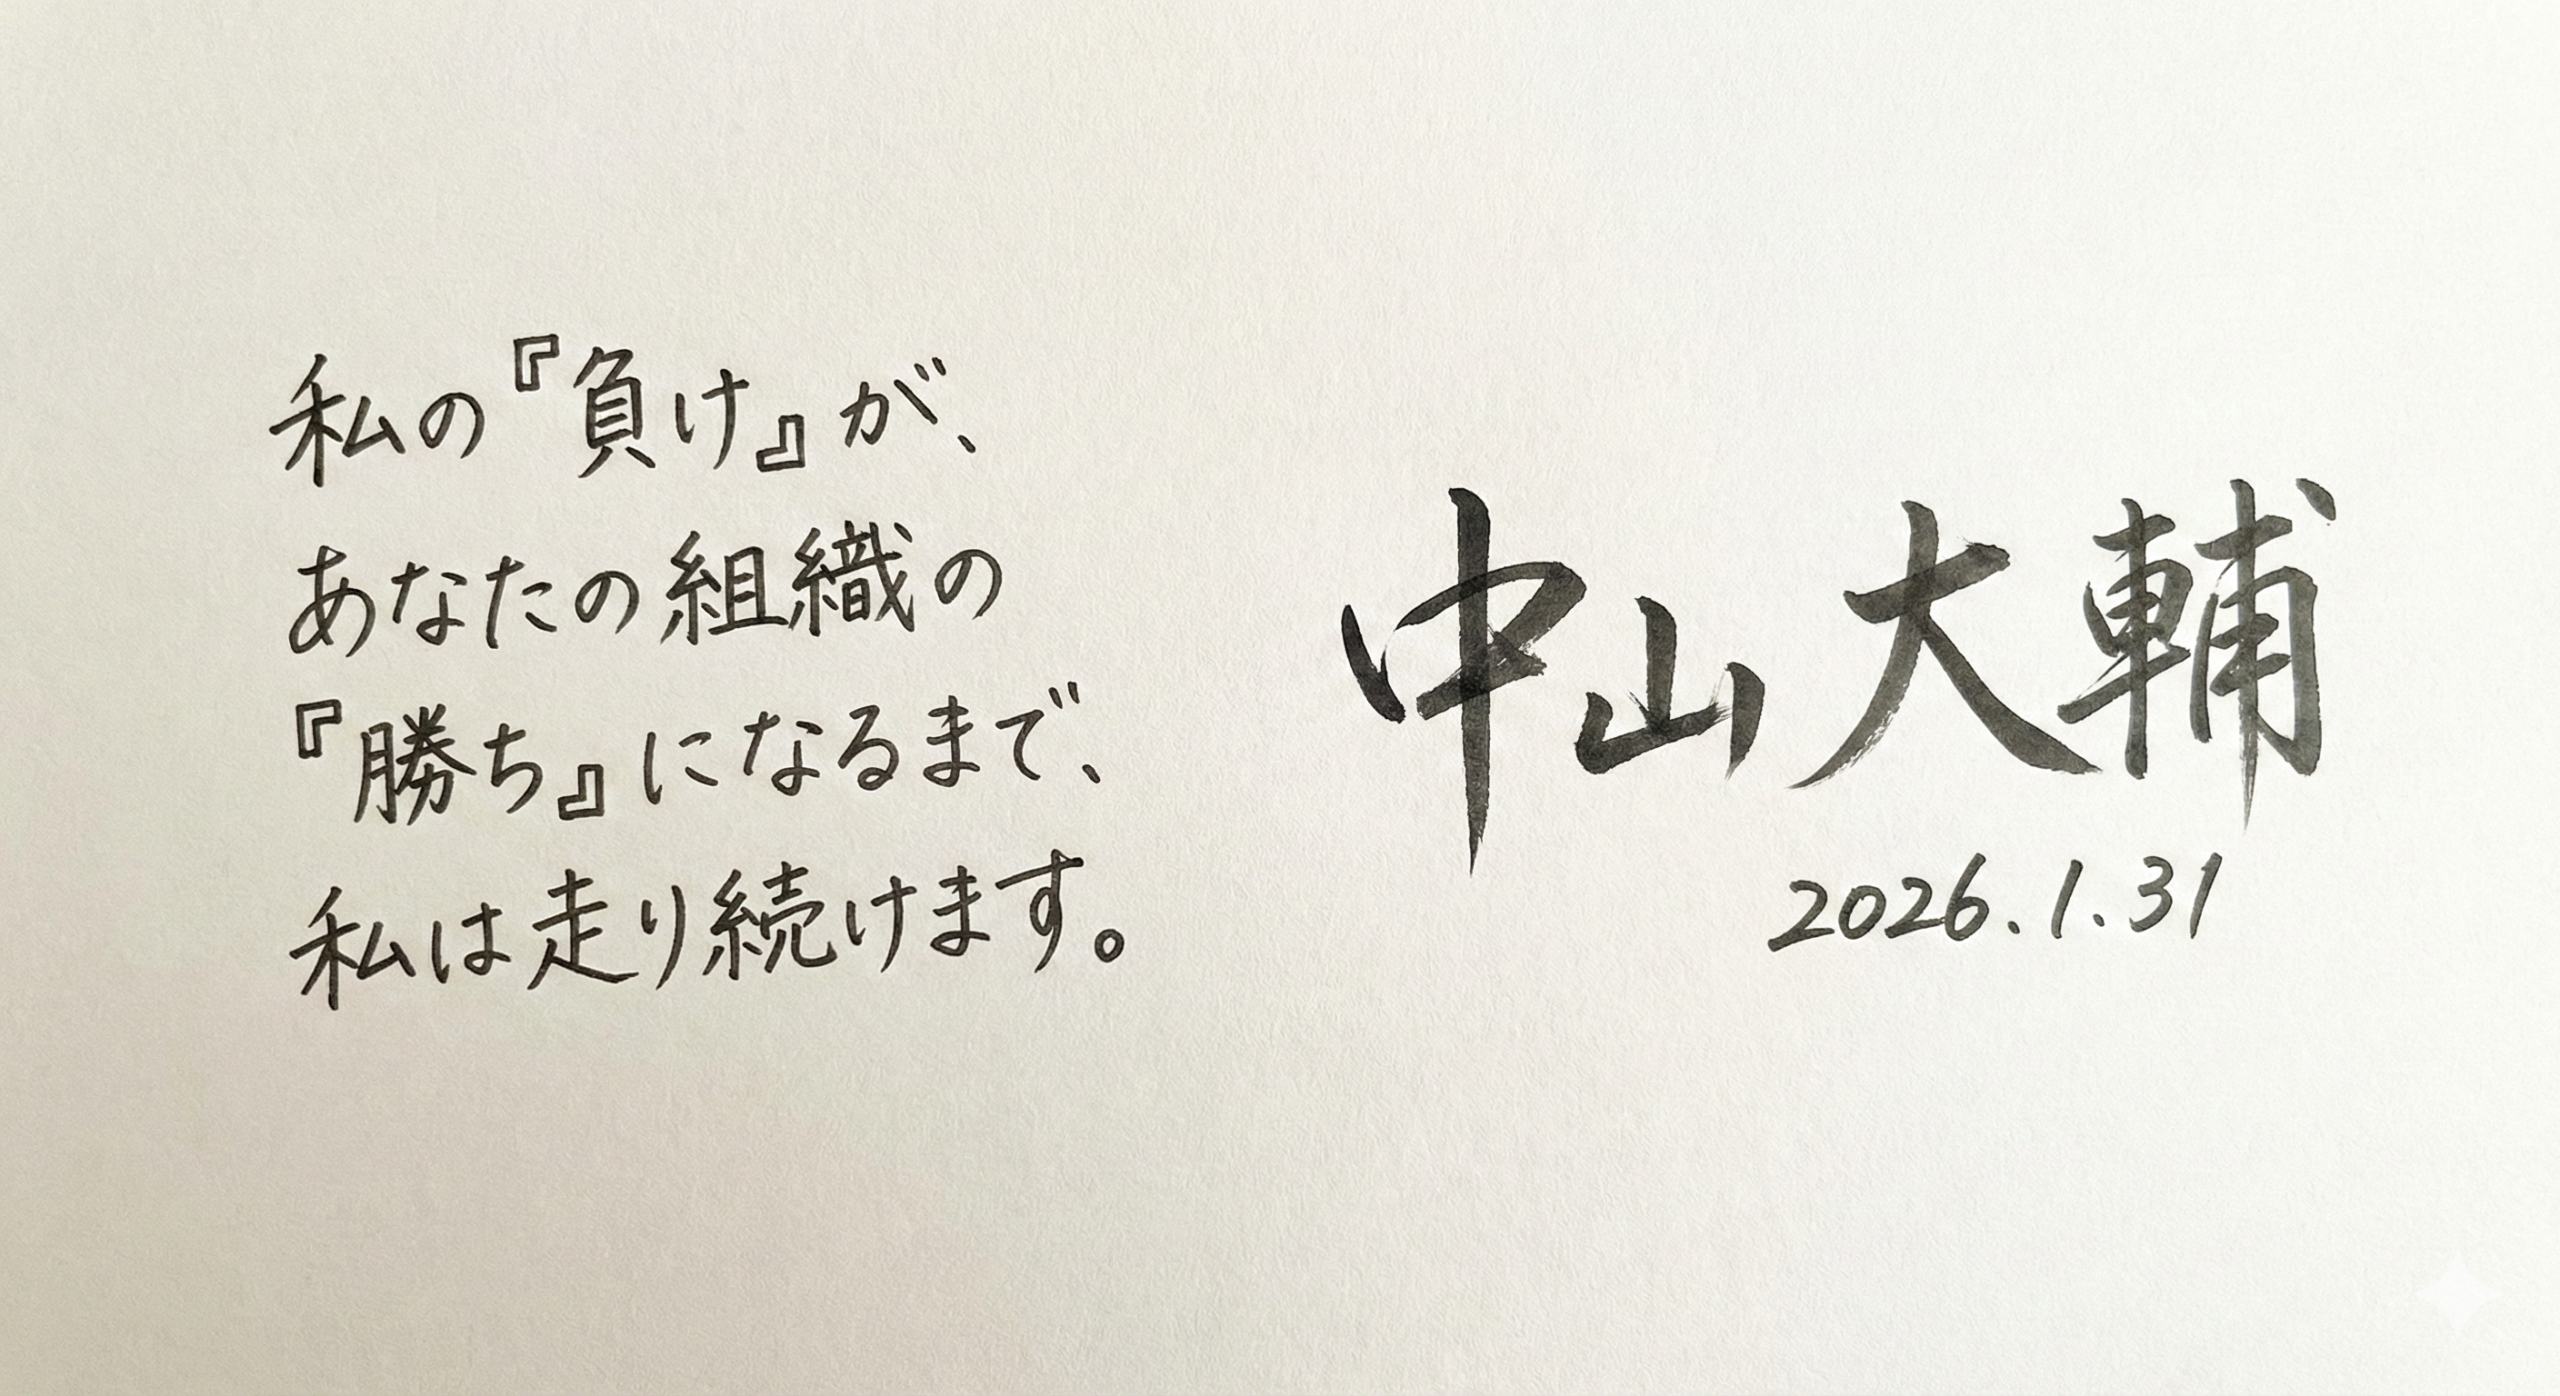 私の『負け』が、
あなたの組織の
『勝ち』になるまで、
私は走り続けます。
中山大輔
2026.1.31